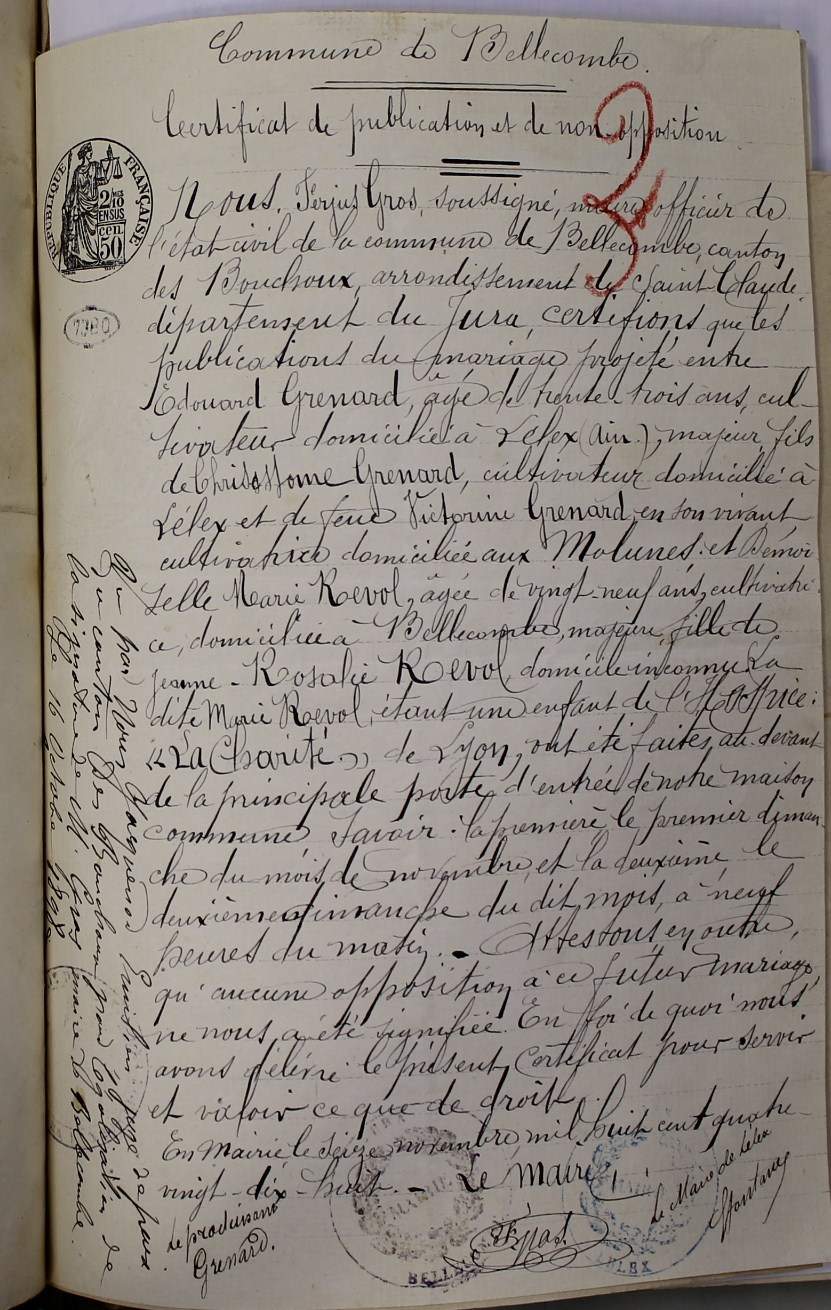 Commune de Bellecombe.
Certificat de publication et de non-opposition
32
RÉPUBLIQUE FRANÇAISE
2/10 EN SUS
50 cen
Nous, Ferjus Gros, soussigné, maire officier de
l'état civil de la commune de Bellecombe, canton
des Bouchoux, arrondissement de Saint-Claude
département du Jura, certifions que les
publications du mariage projeté entre
Edouard Grenard, âgé de trente-trois ans, cul-
tivateur domicilié à Lélex (Ain.), majeur, fils
de Chrisostome Grenard, cultivateur domicilié à
Lélex et de feue Victorine Grenard, en son vivant
cultivatrice domiciliée aux Molunes; et Demoi-
selle Marie Revol, âgée de vingt-neuf ans, cultivatri-
ce, domiciliée à Bellecombe, majeure, fille de
Jeanne-Rosalie Revol, domicile inconnu. La
dite Marie Revol, étant une enfant de l'Hospice:
« La Charité » de Lyon, ont été faites au-devant
de la principale porte d'entrée de notre maison
commune savoir: la première le premier diman-
che du mois de novembre, et la deuxième, le
deuxième dimanche du dit mois, à neuf
heures du matin. - Attestons, en outre,
qu'aucune opposition à ce futur mariage,
ne nous a été signifiée. En foi de quoi nous
avons délivré le présent certificat pour servir
et valoir ce que de droit.
En Mairie le seize novembre mil huit cent quatre-
vingt-dix-huit. - Le Maire,
F. Gros
le produisant
Grenard.
Le Maire de Lélex
Vu par Nous juge de paix
du canton des Bouchoux pour légalisation de
la signature de M. Gros maire de Bellecombe.
Le 16 1898
MAIRIE
BELLECOMBE
LELEX